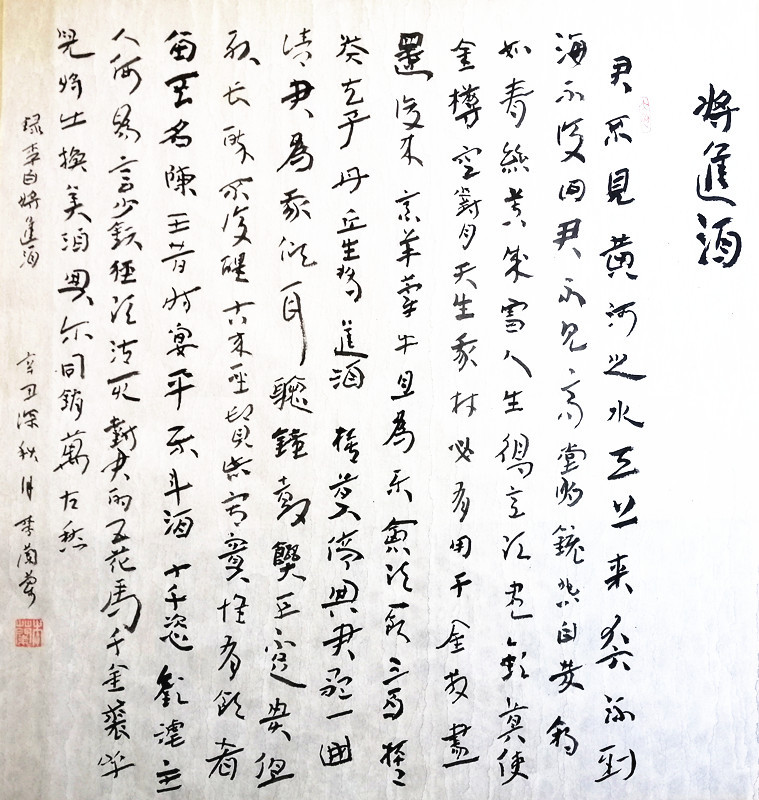 將進酒
君不見黃河之水天上來奔流到
海不復回君不見高堂明鏡悲白髮朝
如青絲暮成雪人生得意須盡歡莫使
金樽空對月天生我材必有用千金散盡
還復來烹羊宰牛且為樂會須一飲三百杯
岑夫子丹丘生將進酒杯莫停與君歌一曲
請君為我傾耳聽鐘鼓饌玉不足貴但
願长醉不復醒古來聖賢皆寂寞惟有飲者
留其名陳王昔時宴平樂斗酒十千恣歡謔主
人何為言少錢徑須沽取對君酌五花馬千金裘呼
兒將出換美酒與尔同銷萬古愁
錄李白將進酒 辛丑深秋月